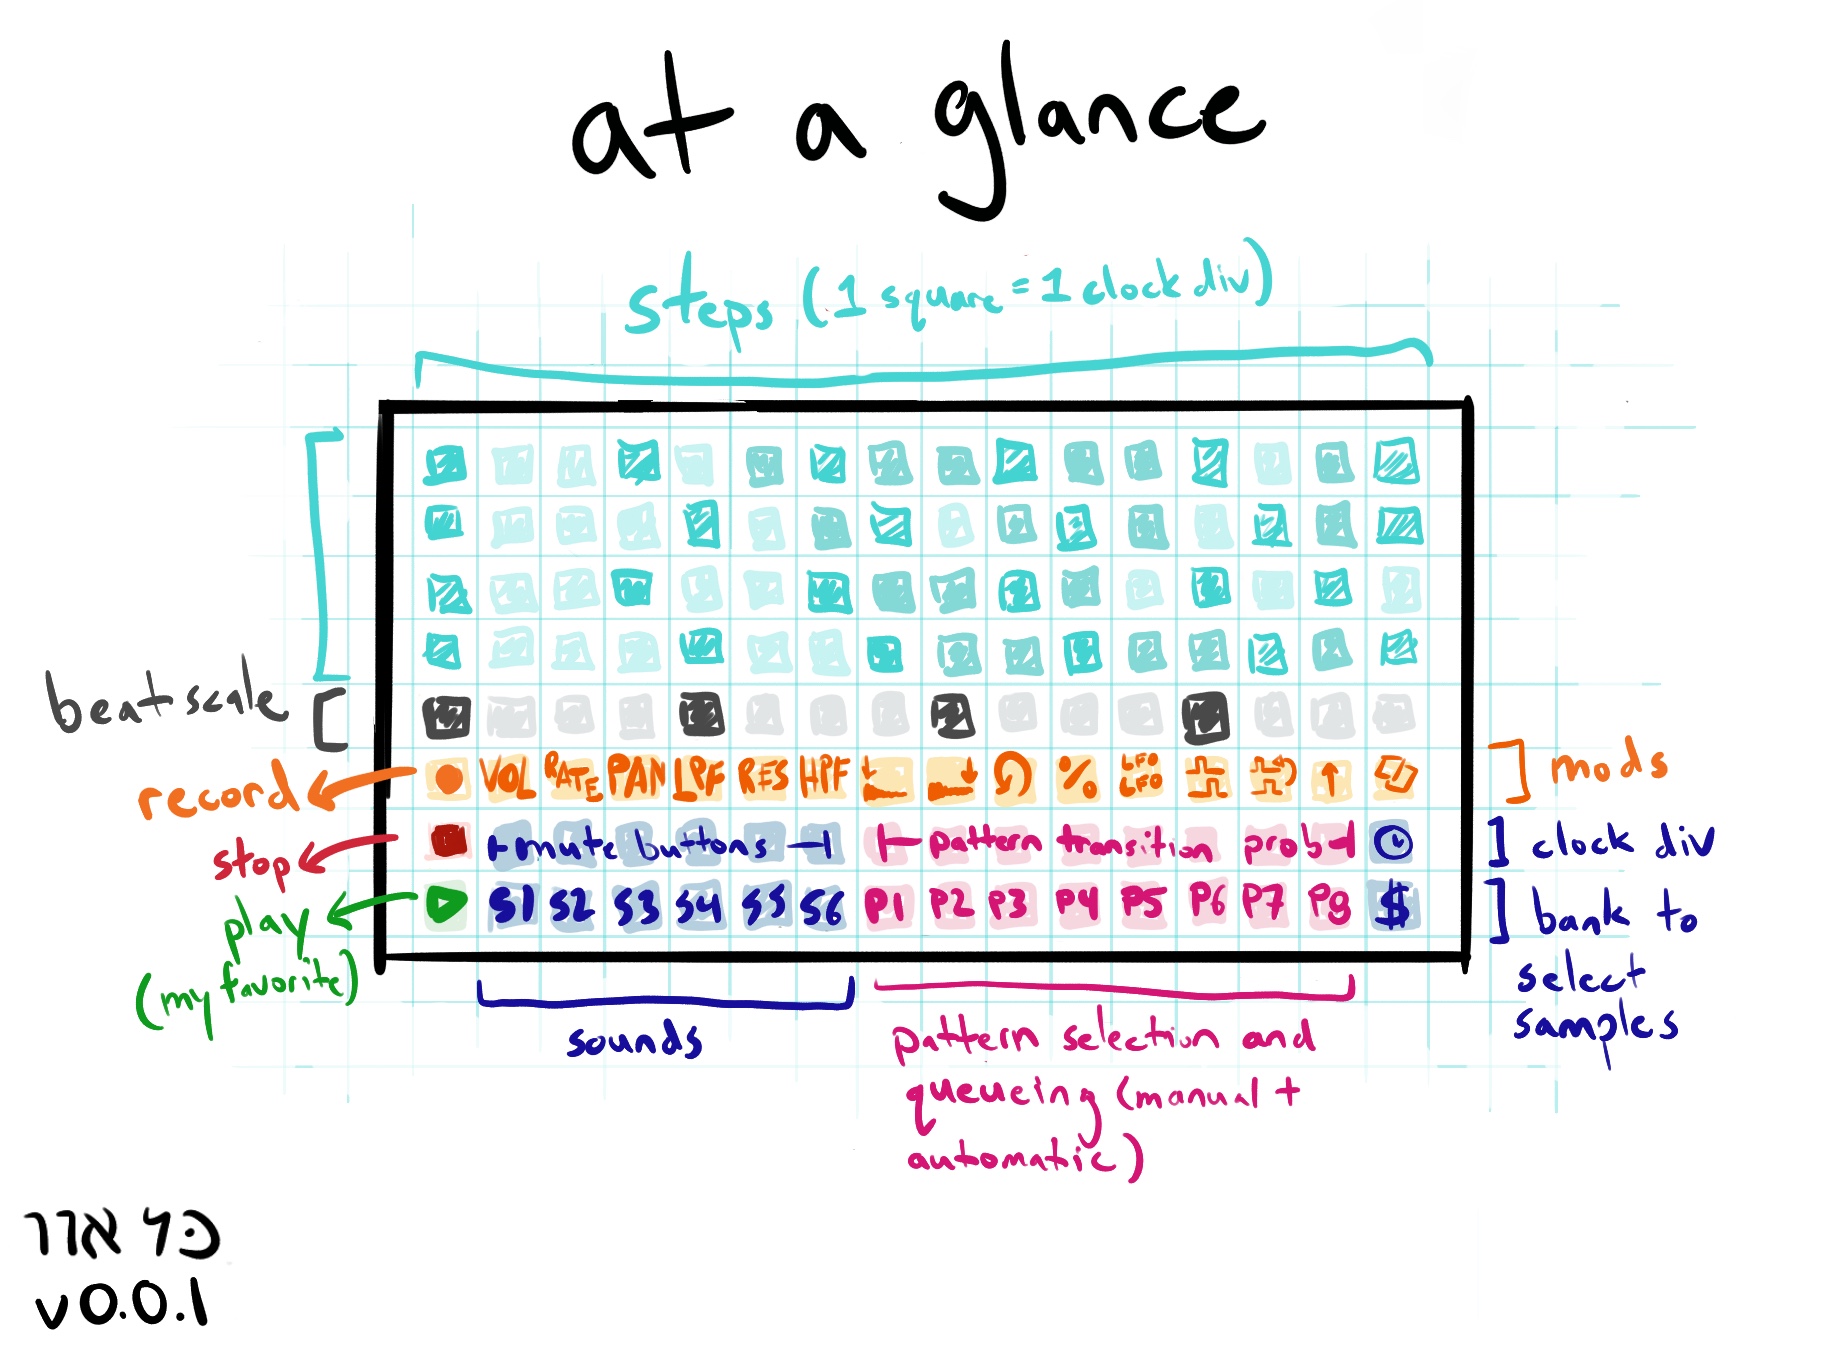 at a glance
steps (1 square = 1 clock div)
beat scale
record
VOL RATE PAN LPF RES HPF % LFO LFO
mods
stop
mute buttons
pattern transition prob
clock div
play
(my favorite)
S1 S2 S3 S4 S5 S6 P1 P2 P3 P4 P5 P6 P7 P8 $
bank to
select
samples
sounds
pattern selection and
queueing (manual +
automatic)
v0.0.1